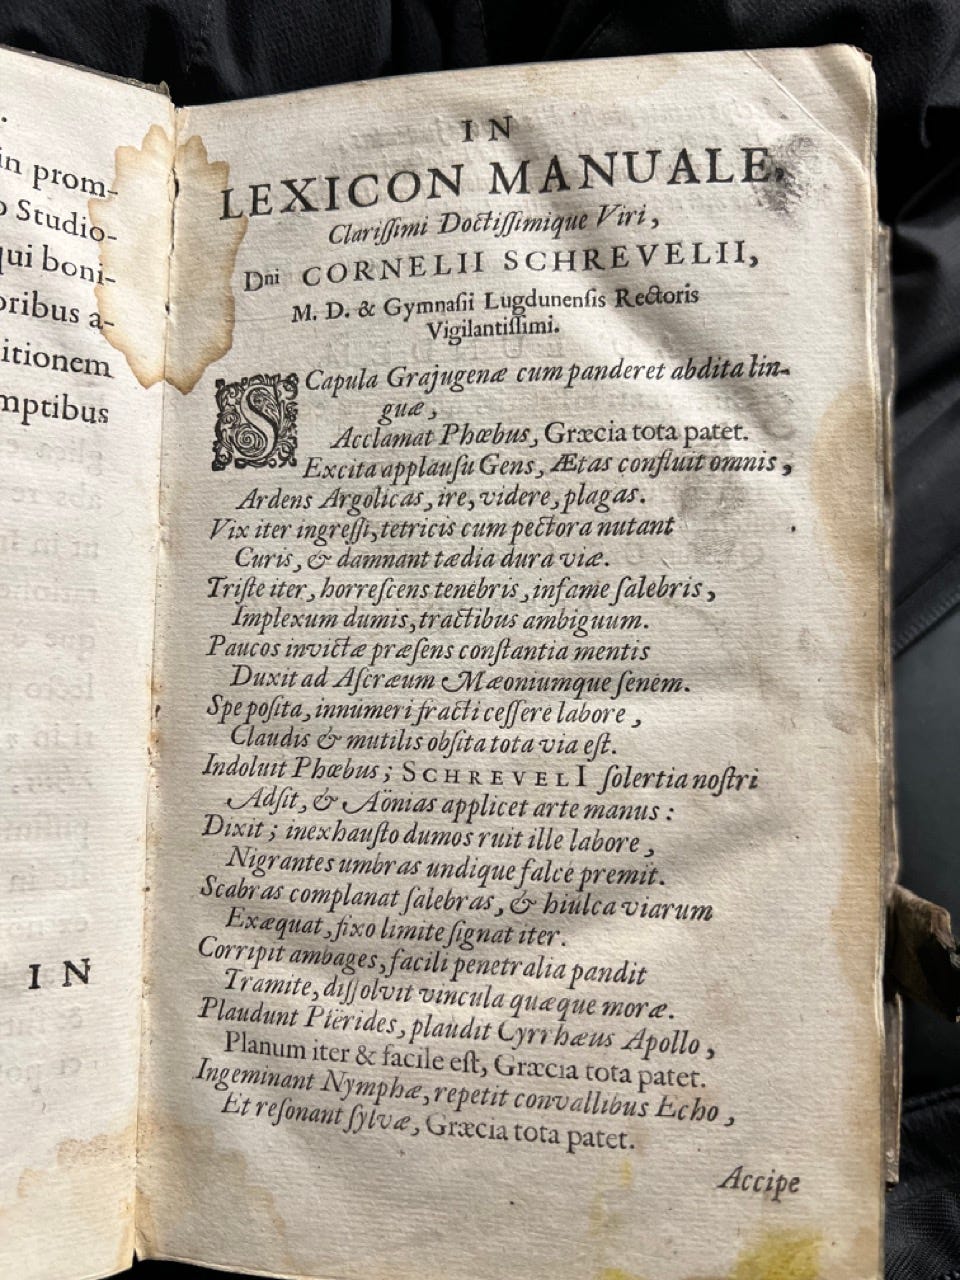 in prom-
Studio-
qui boni-
oribus a-
itionem
mptibus
IN
IN
LEXICON MANUALE,
Clariſſimi Doctiſſimique Viri,
Dni CORNELII SCHREVELII,
M. D. & Gymnaſii Lugdunenſis Rectoris
Vigilantiſſimi.
SCapula Grajugenæ cum panderet abdita lin-
guæ,
Acclamat Phœbus, Græcia tota patet.
Excita applauſu Gens, Ætas confluit omnis,
Ardens Argolicas, ire, videre, plagas.
Vix iter ingreſſi, tetricis cum pectora nutant
Curis, & damnant tædia dura viæ.
Triſte iter, horreſcens tenebris, infame ſalebris,
Implexum dumis, tractibus ambiguum.
Paucos invictæ præſens conſtantia mentis
Duxit ad Aſcræum Mæoniumque ſenem.
Spe poſita, innumeri fracti ceſſere labore,
Claudis & mutilis obſita tota via eſt.
Indoluit Phœbus; SCHREVELI ſolertia noſtri
Adſit, & Aönias applicet arte manus:
Dixit; inexhauſto dumos ruit ille labore,
Nigrantes umbras undique falce premit.
Scabras complanat ſalebras, & hiulca viarum
Exæquat, fixo limite ſignat iter.
Corripit ambages, facili penetralia pandit
Tramite, diſſolvit vincula quæque moræ.
Plaudunt Pïerides, plaudit Cyrrhæus Apollo,
Planum iter & facile eſt, Græcia tota patet.
Ingeminant Nymphæ, repetit convallibus Echo,
Et reſonant ſylvæ, Græcia tota patet.
Accipe